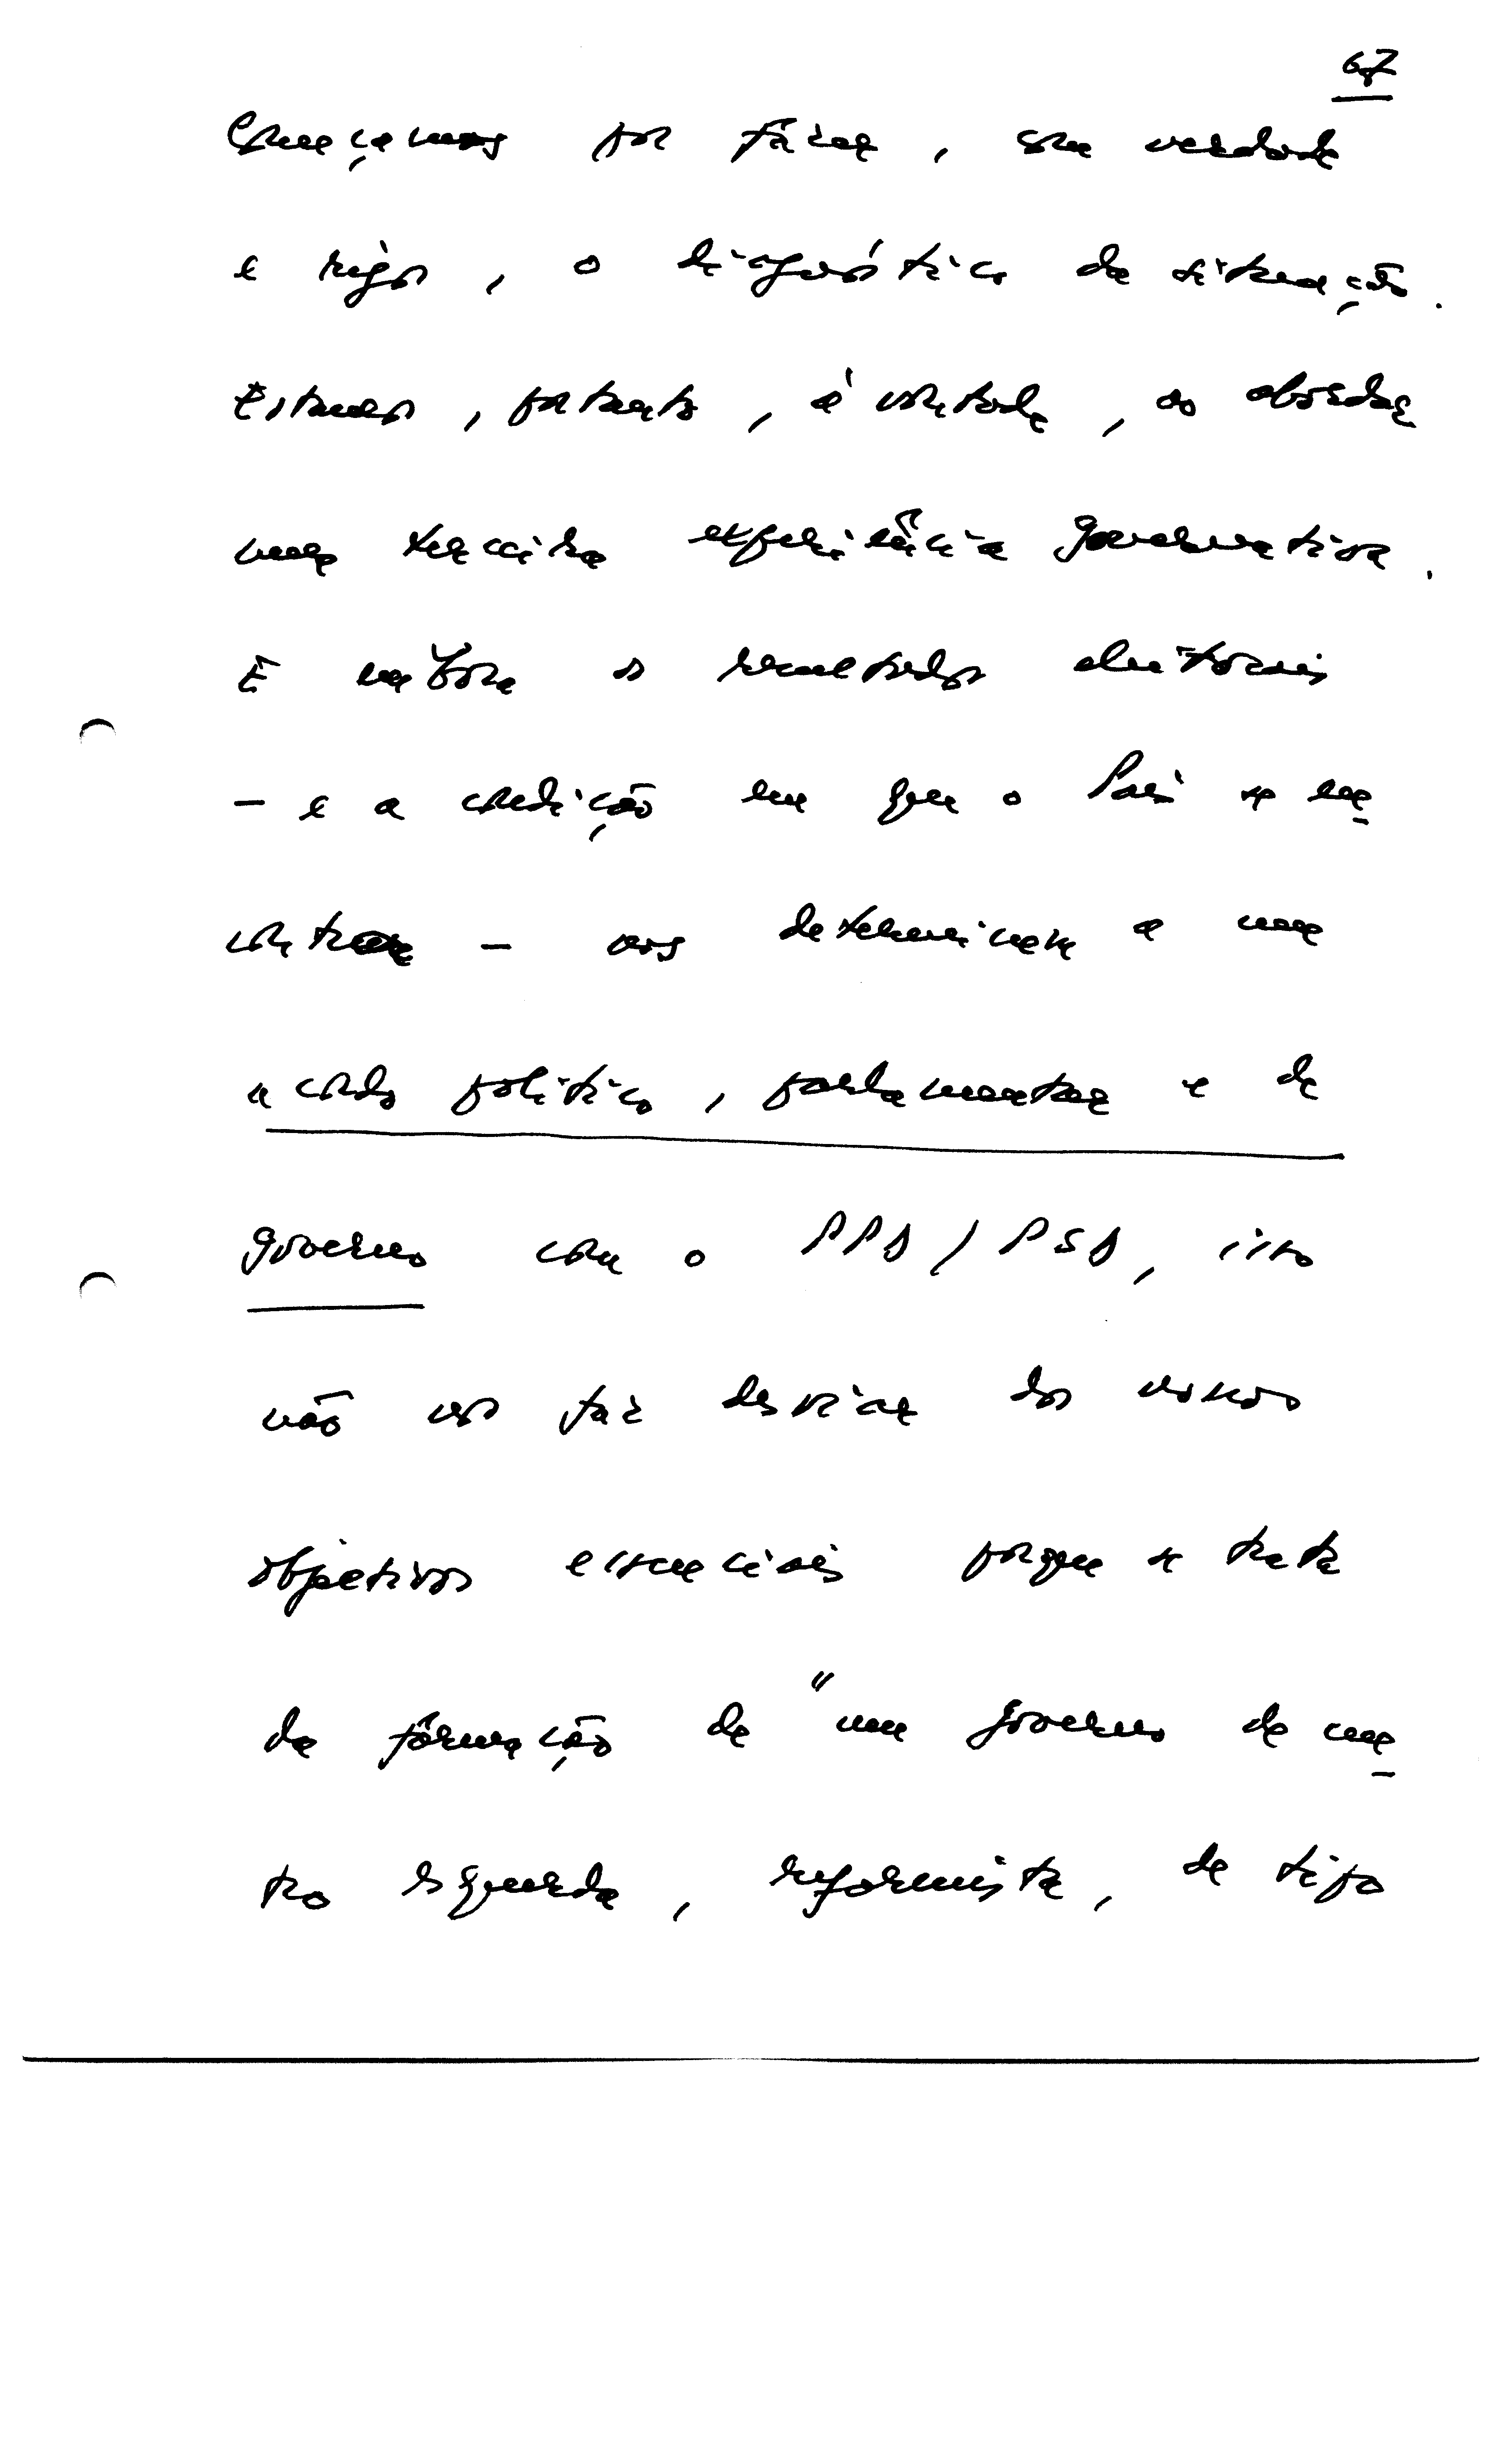 67
Começamos por fazer, com verdade
e rigor, o diagnóstico da situação.
Estamos, portanto, à vontade, ao abordar
uma terceira experiência governativa.
E embora os resultados eleitorais
- e a condição em que o País se en
contra - nos determinem a um
acordo político, parlamentar e de
governo com o PPD/PSD, isso
não nos faz desviar dos nossos
objectivos essenciais porque se trata
da formação de "um governo de cen
tro esquerda, reformista, de tipo